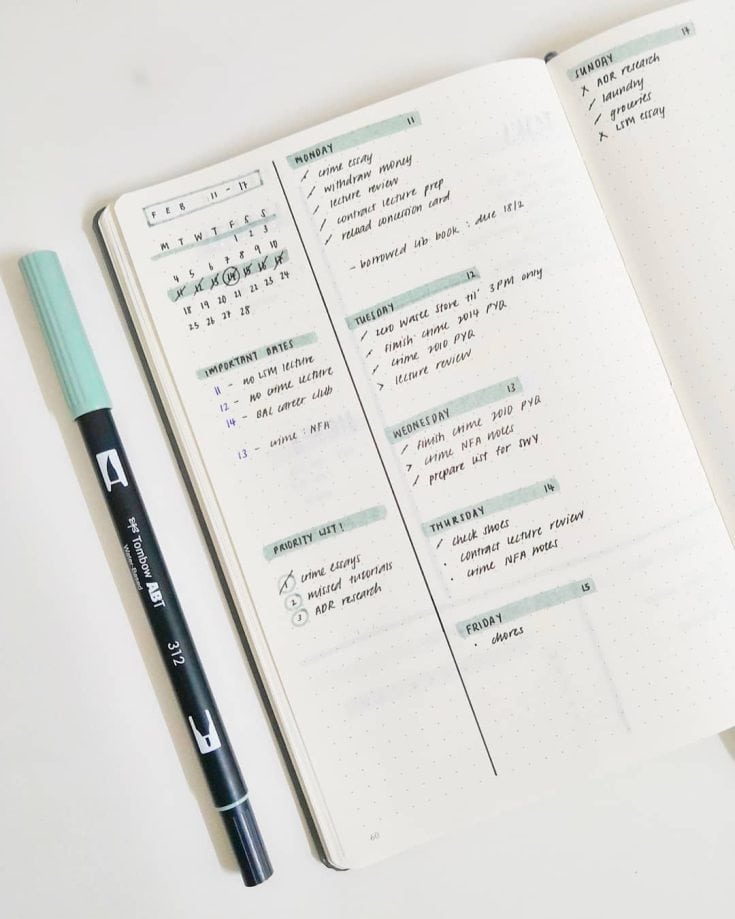 FEB 11 - 17
M T W T F S S
1 2 3
4 5 6 7 8 9 10
11 12 13 14 15 16 17
18 19 20 21 22 23 24
25 26 27 28
IMPORTANT DATES
11 - no LSM lecture
12 - no crime lecture
14 - BAL career club
13 - crime : NFA
PRIORITY LIST!
1 crime essays
2 missed tutorials
3 ADR research
MONDAY 11
/ crime essay
/ withdraw money
/ lecture review
/ contract lecture prep
/ reload concession card
- borrowed lib book : due 18/2
TUESDAY 12
/ zero waste store til' 3PM only
/ finish crime 2014 PYQ
/ crime 2010 PYQ
> lecture review
WEDNESDAY 13
/ finish crime 2010 PYQ
> crime NFA notes
/ prepare list for
THURSDAY 14
/ check shoes
· contract lecture review
· crime NFA notes
FRIDAY 15
· chores
60
SUNDAY 17
x ADR research
/ laundry
/ groceries
x LSM essay
Tombow ABT
Water-Based
312